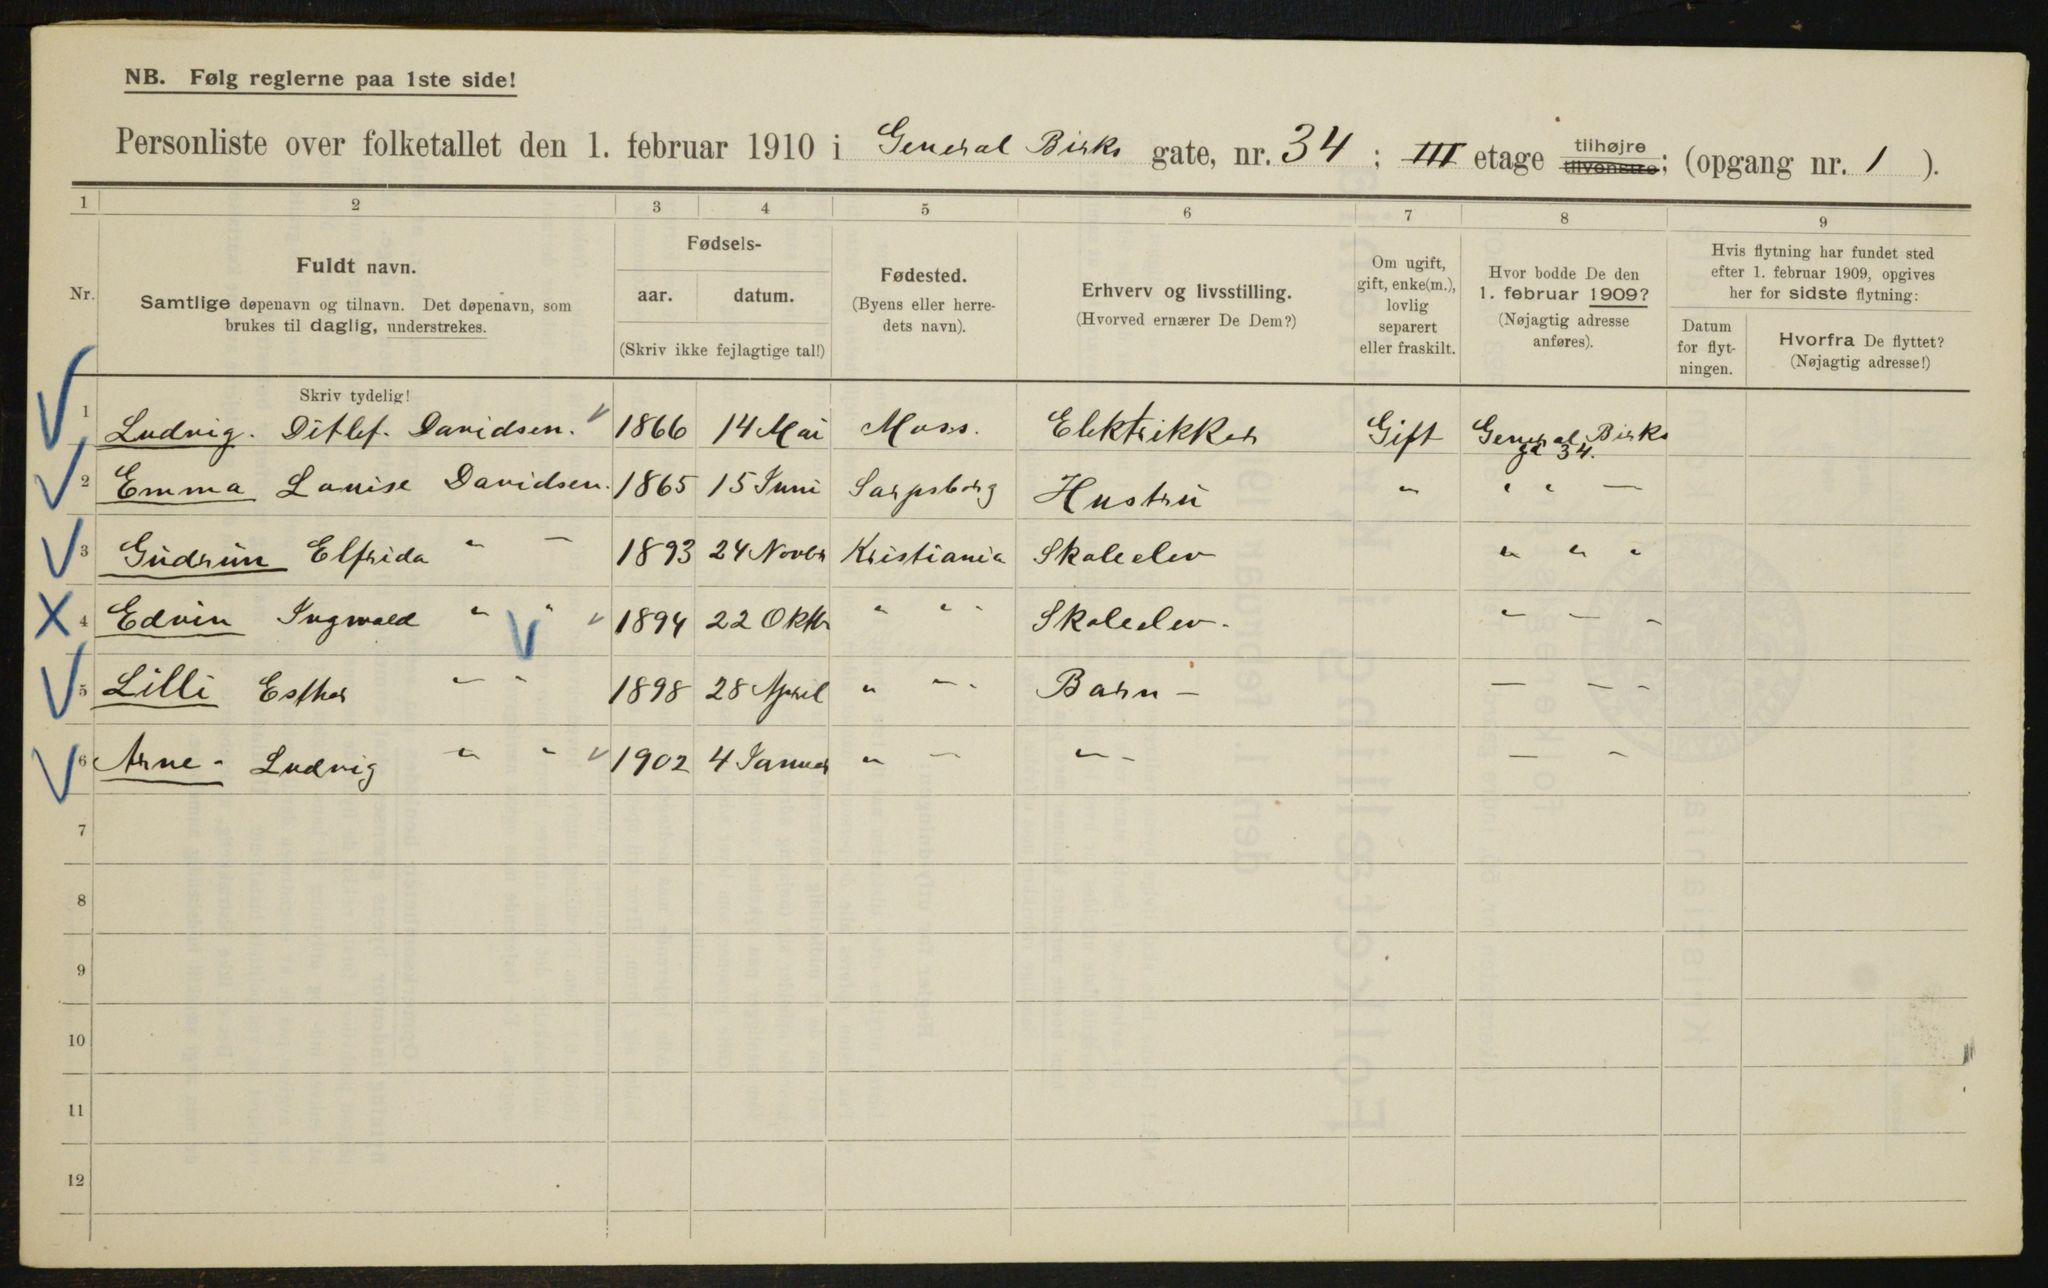 NB. Følg reglerne paa 1ste side!
Personliste over folketallet den 1. februar 1910 i General Birks gate, nr. 34; III etage tilhøjre tilvenstre; (opgang nr. 1 ).
1 2 3 4 5 6 7 8 9
Nr.
Fuldt navn.
Samtlige døpenavn og tilnavn. Det døpenavn, som
brukes til daglig, understrekes.
Fødsels-
aar. datum.
(Skriv ikke fejlagtige tal!)
Fødested.
(Byens eller herre-
dets navn).
Erhverv og livsstilling.
(Hvorved ernærer De Dem?)
Om ugift,
gift, enke(m.),
lovlig
separert
eller fraskilt.
Hvor bodde De den
1. februar 1909?
(Nøjagtig adresse
anføres).
Hvis flytning har fundet sted
efter 1. februar 1909, opgives
her for sidste flytning:
Datum
for flyt-
ningen.
Hvorfra De flyttet?
(Nøjagtig adresse!)
Skriv tydelig!
1 Ludvig. Ditlef. Davidsen. 1866 14 Mai Moss. Elektrikker Gift General Birks
gd 34.
2 Emma Louise Davidsen. 1865 15 Juni Sarpsborg Hustru " " " —
3 Gudrun Elfrida " — 1893 24 Novbr Kristiania Skoleelev " " "
4 Edvin Ingwald " " 1894 22 Oktb " " - Skoleelev. " — -
5 Lilli Esther " " 1898 28 April " " - Barn — — - -
6 Arne - Ludvig " " 1902 4 Januar " — " - — "
7
8
9
10
11
12